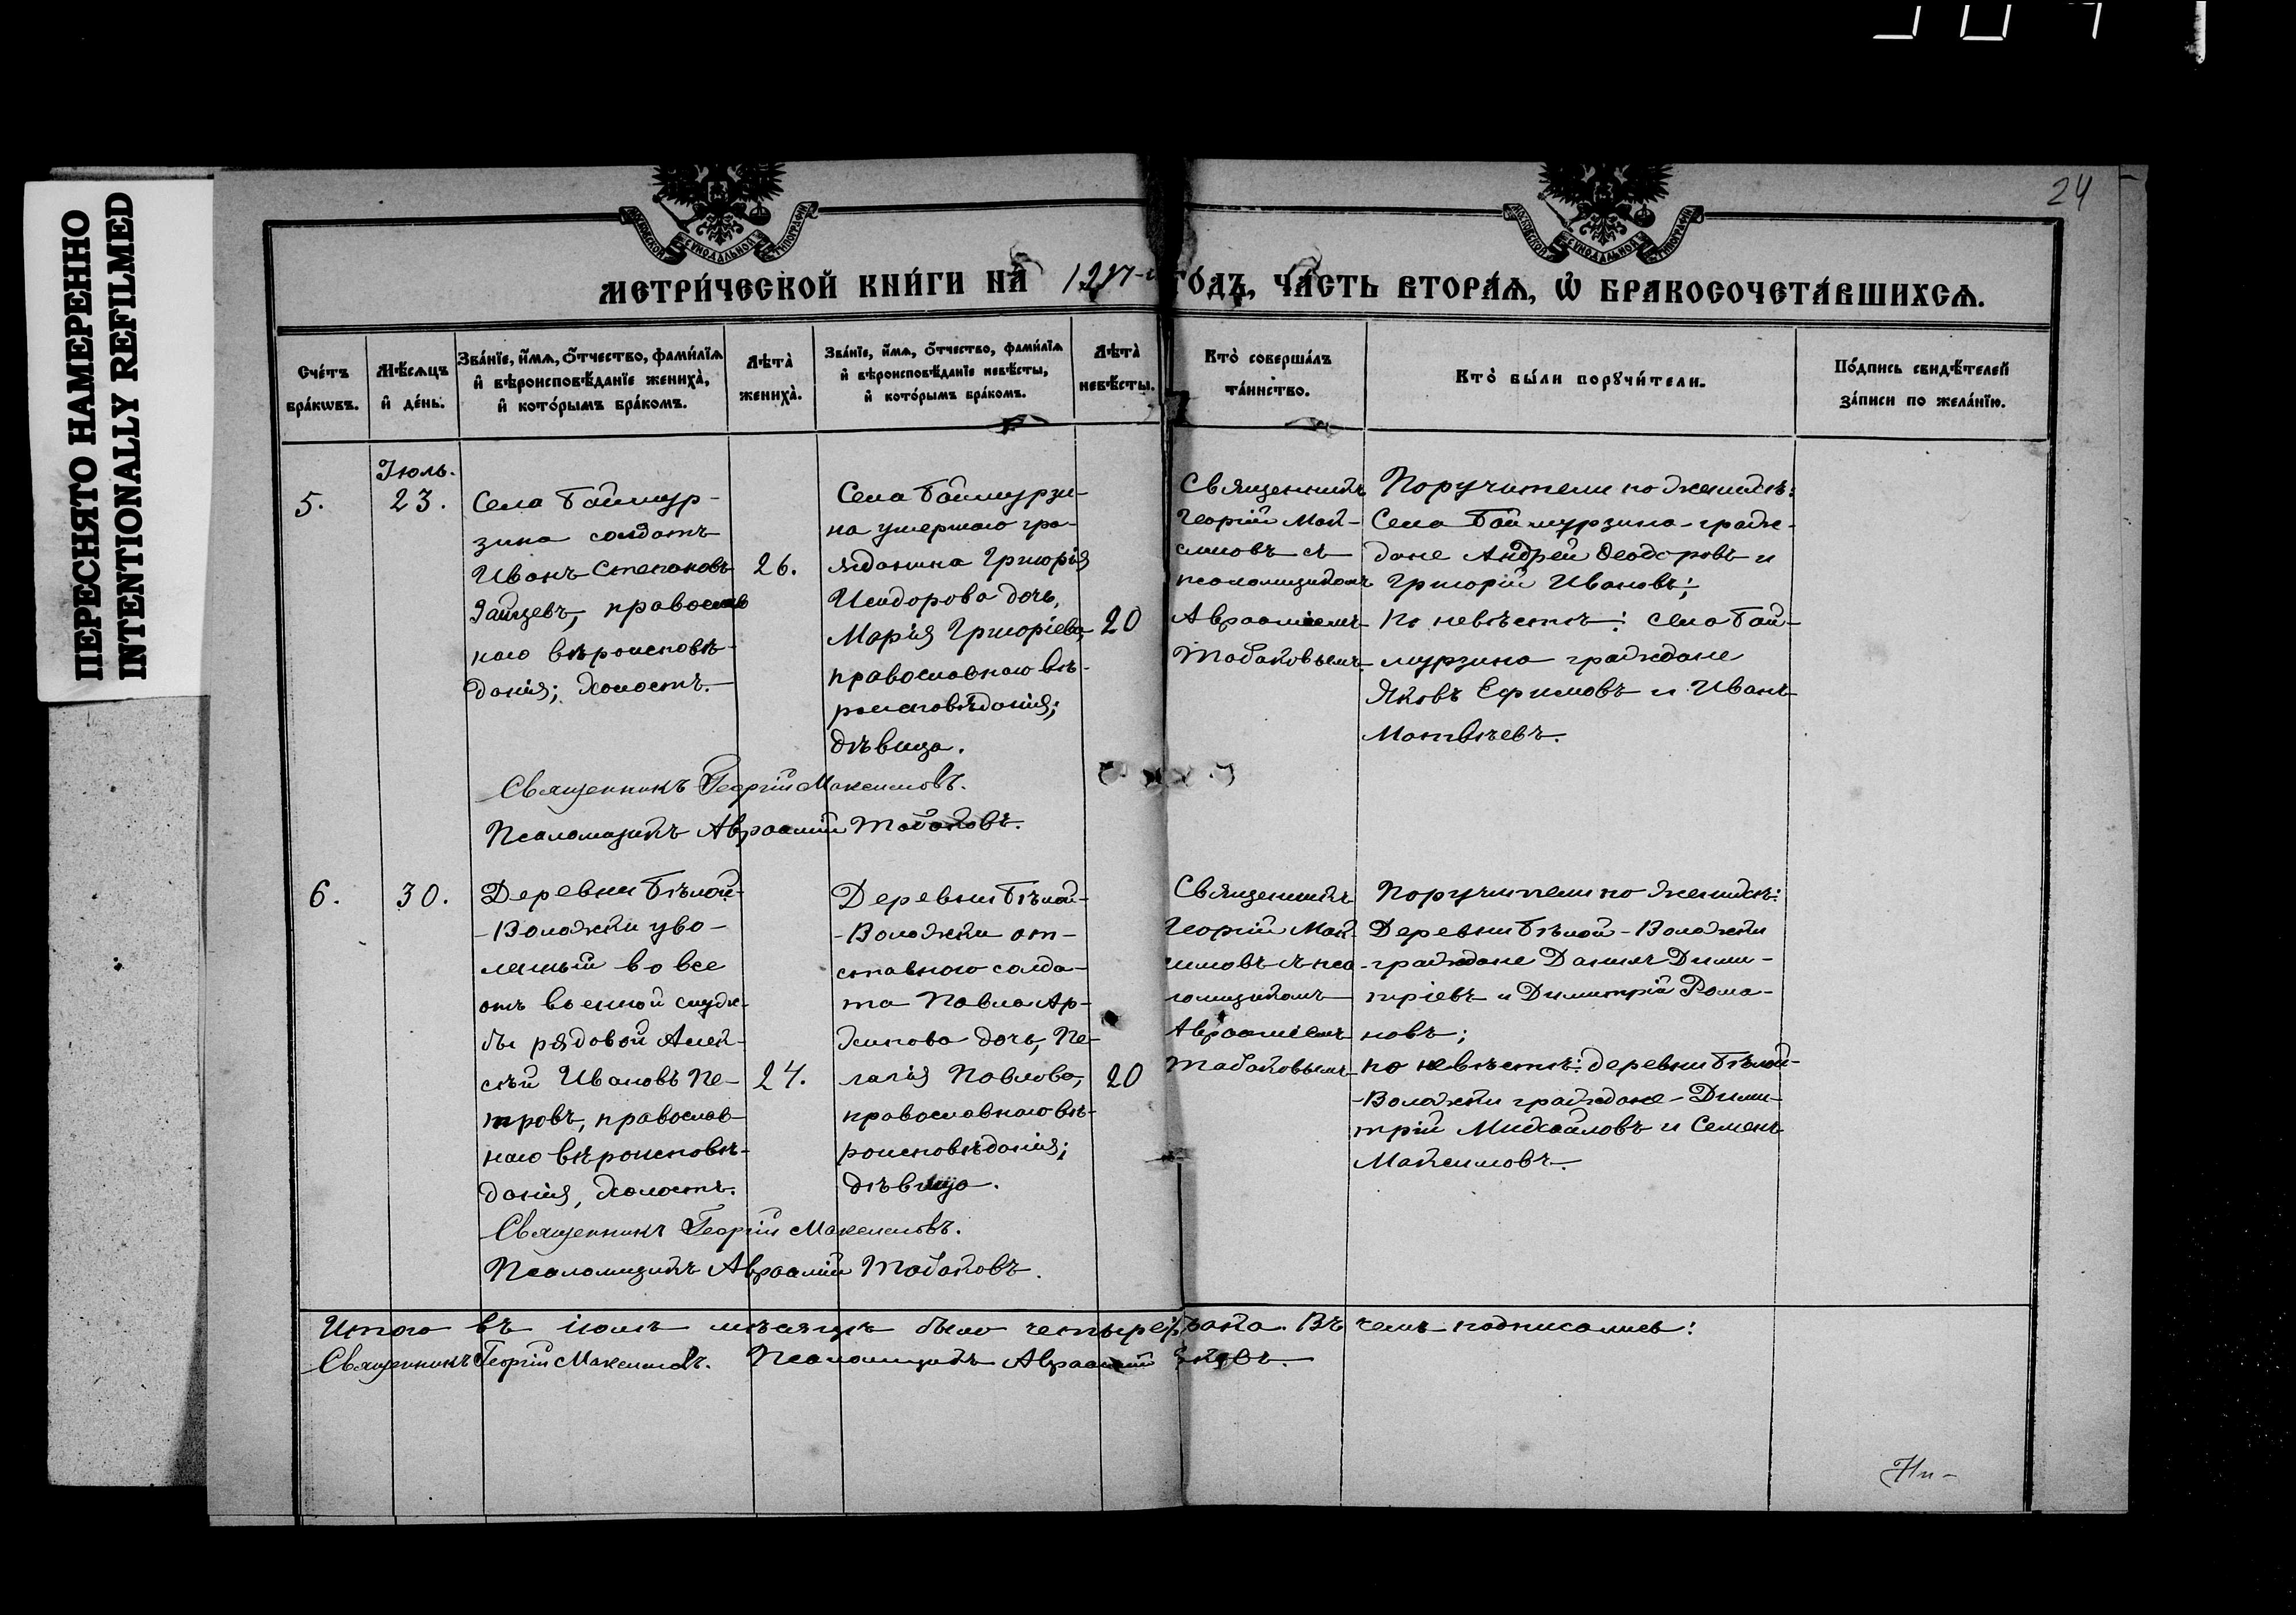 ПЕРЕСНЯТО НАМЕРЕННО
INTENTIONALLY REFILMED
24
МОСКОВСКОЙ СѴНОДАЛЬНОЙ ТИПОГРАФІИ
МОСКОВСКОЙ СѴНОДАЛЬНОЙ ТИПОГРАФІИ
МЕТРИ́ЧЕСКОЙ КНИ́ГИ НА 1917-й ГО́ДЪ, ЧА́СТЬ ВТОРА́Ѧ, Ѡ҆ БРАКОСОЧЕТА́ВШИХСѦ.
Сче́тъ
бра́кѡвъ.
Мѣ́сѧцъ
и҆ де́нь.
Зва́нїе, и҆́мѧ, ѻ҆́тчество, фами́лїѧ
и҆ вѣроисповѣ́данїе жениха̀,
и҆ кото́рымъ бра́комъ.
Лѣта̀
жениха̀.
Зва́нїе, и҆́мѧ, ѻ҆́тчество, фами́лїѧ
и҆ вѣроисповѣ́данїе невѣ́сты,
и҆ кото́рымъ бра́комъ.
Лѣта̀
невѣ́сты.
Кто̀ соверша́лъ
та́инство.
Кто̀ бы́ли порꙋчи́тели.
По́дпись свидѣ́телей
за́писи по жела́нїю.
5.
Іюль.
23.
Села Баймур-
зина солдатъ
Иванъ Степановъ
Зайцевъ, православ
наго вѣроисповѣ-
данія; холостъ.
26.
Села Баймурзи-
на умершаго гра-
жданина Григорія
Исидорова дочь,
Марія Григоріева,
православнаго вѣ-
роисповѣданія;
дѣвица.
20
Священникъ
Георгій Мак-
симовъ съ
псаломщикомъ
Авраамiемъ
Табаковымъ.
Поручители по женихѣ:
Села Баймурзина-граж-
дане Андрей Ѳеодоровъ и
Григорій Ивановъ;
по невѣстѣ: села Бай-
мурзина граждане
Яковъ Ефимовъ и Иванъ
Матвѣевъ.
Священникъ Георгій Максимовъ.
Псаломщикъ Авраамій Табаковъ.
6.
30.
Деревни Бѣлой-
-Воложки уво-
леный вовсе
отъ военной служ-
бы рядовой Алек-
сѣй Ивановъ Пе-
тровъ, православ-
наго вѣроисповѣ-
данія, холостъ.
24.
Деревни Бѣлой-
-Воложки от-
ставного солда-
та Павла Ар-
хипова дочь, Пе-
лагія Павлова,
православнаго вѣ-
роисповѣданія;
дѣвица.
20
Священникъ
Георгій Мак
симовъ съ пса-
ломщикомъ
Авраамiемъ
Табаковымъ
Поручители по женихѣ:
Деревни Бѣлой-Воложки
граждане Данилъ Дими-
тріевъ и Димитрій Рома-
новъ;
по невѣстѣ: деревни Бѣлой-
-Воложки граждане-Дими-
трій Михайловъ и Семенъ
Максимовъ.
Священникъ Георгій Максимовъ.
Псаломщикъ Авраамій Табаковъ.
Итого въ іюлѣ мѣсяцѣ было четыре брака. Въ чемъ подписались:
Священникъ Георгій Максимовъ. Псаломщикъ Авраамій